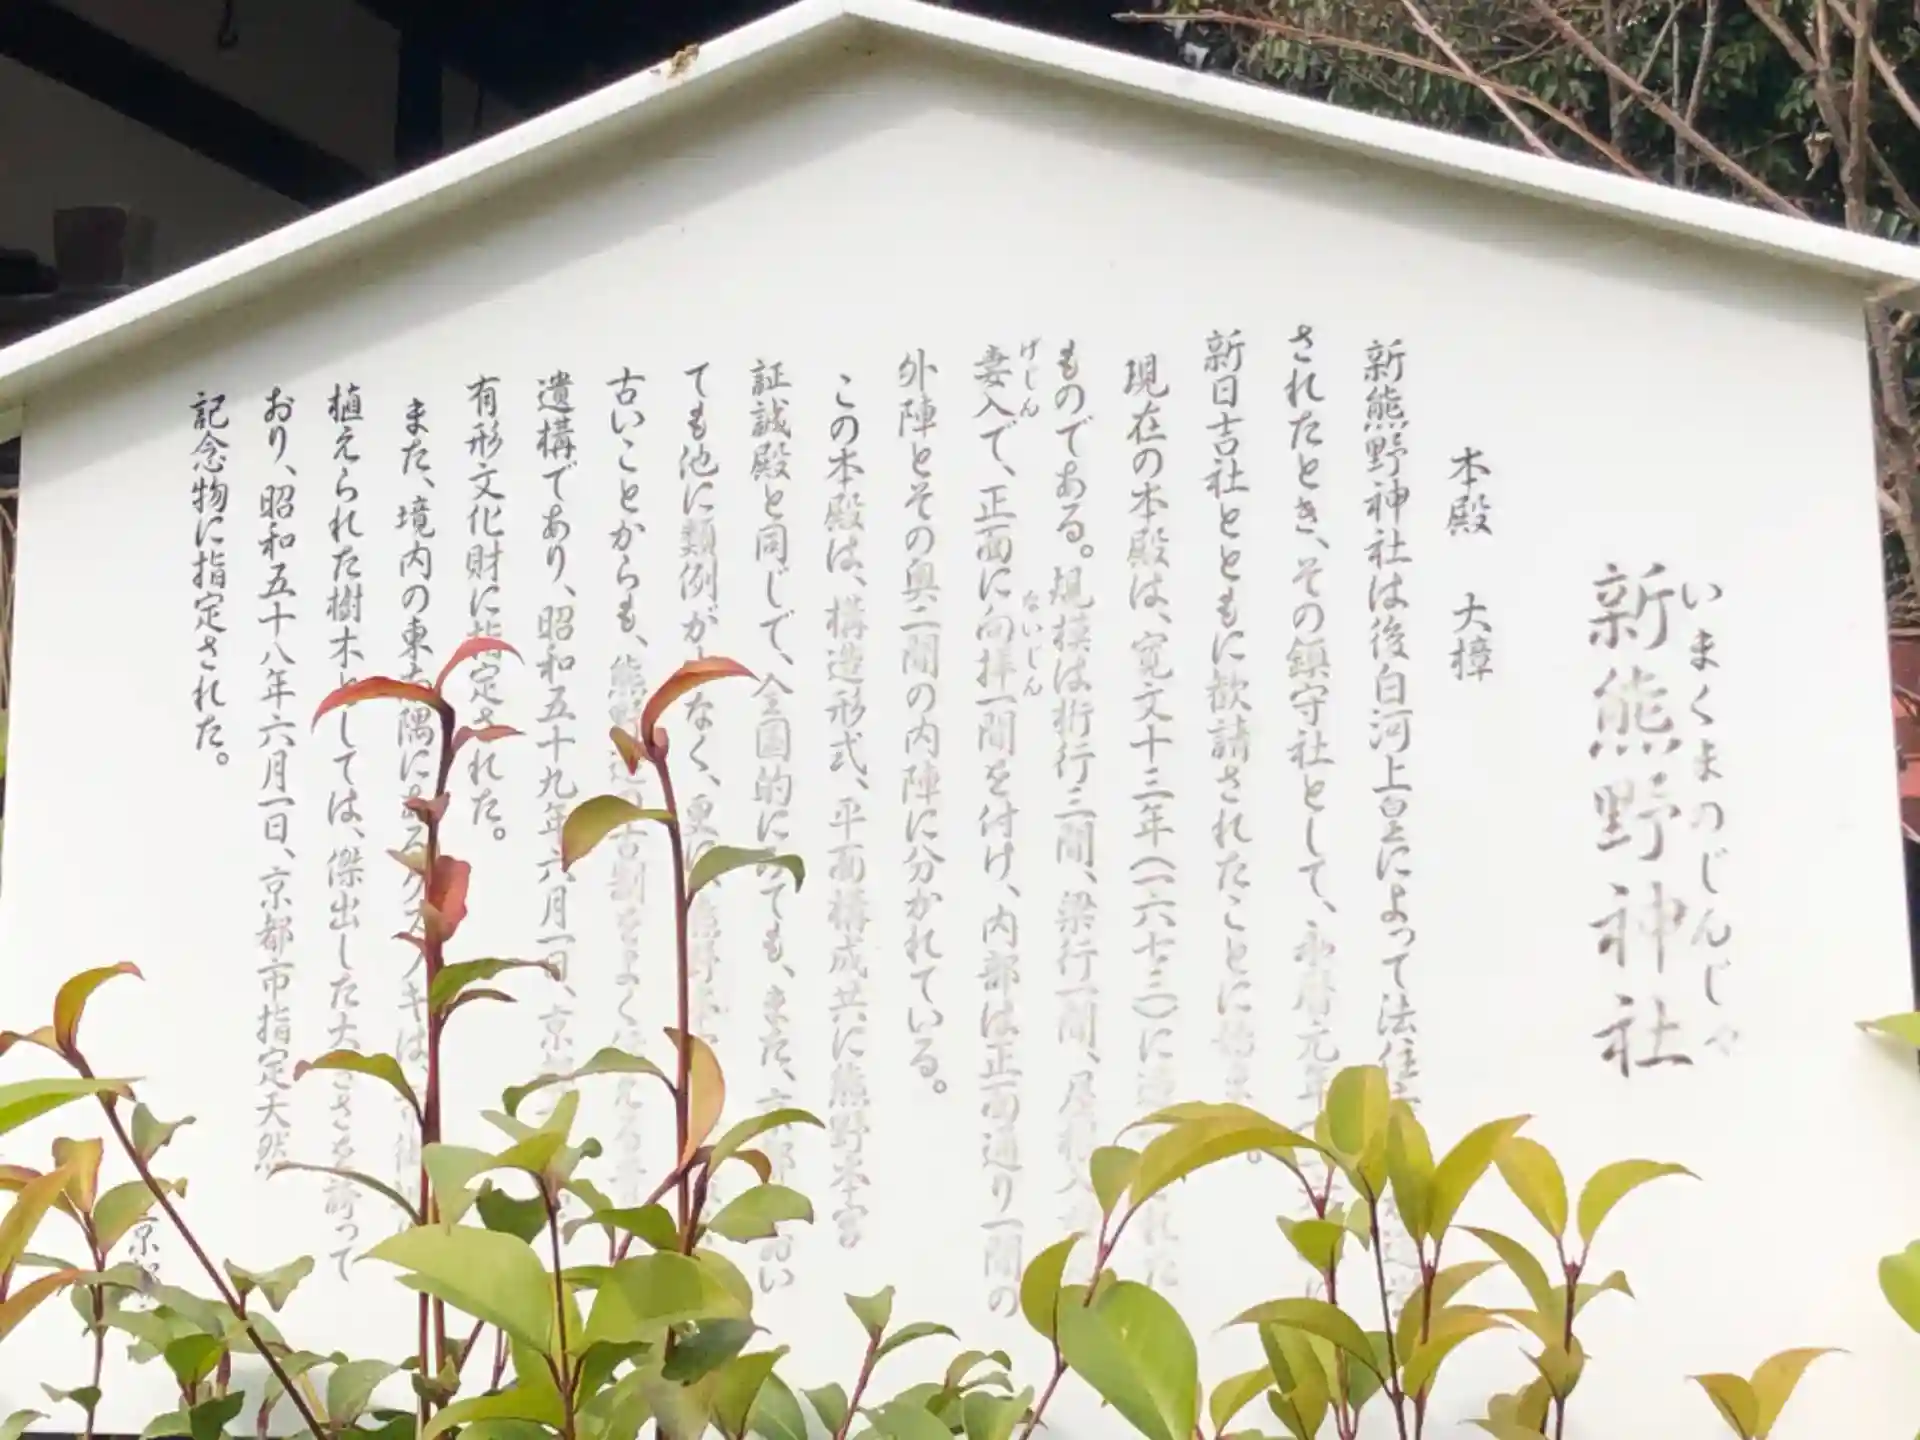 いまくまのじんじゃ
新熊野神社
本殿　大樟
新熊野神社は後白河上皇によって法住
されたとき、その鎮守社として、永暦元年
新日吉社とともに歓請されたことに始ま
現在の本殿は、寛文十三年(一六七三)に
ものである。規模は桁行三間、梁行一間、屋根入
げじん
妻入で、正面に向拝一間を付け、内部は正面通り一間の
ないじん
外陣とその奥二間の内陣に分かれている。
この本殿は、構造形式、平面構成共に熊野本宮
証誠殿と同じで、全国的にみても、また、京都 おい
ても他に類例が なく、更に、熊野
古いことからも、熊野造の古制をよく伝える
遺構であり、昭和五十九年六月一日、京都
有形文化財に指定された。
また、境内の東南隅にあるクスノキは、
植えられた樹木としては、傑出した大きさを誇って
おり、昭和五十八年六月一日、京都市指定天然
記念物に指定された。
京都